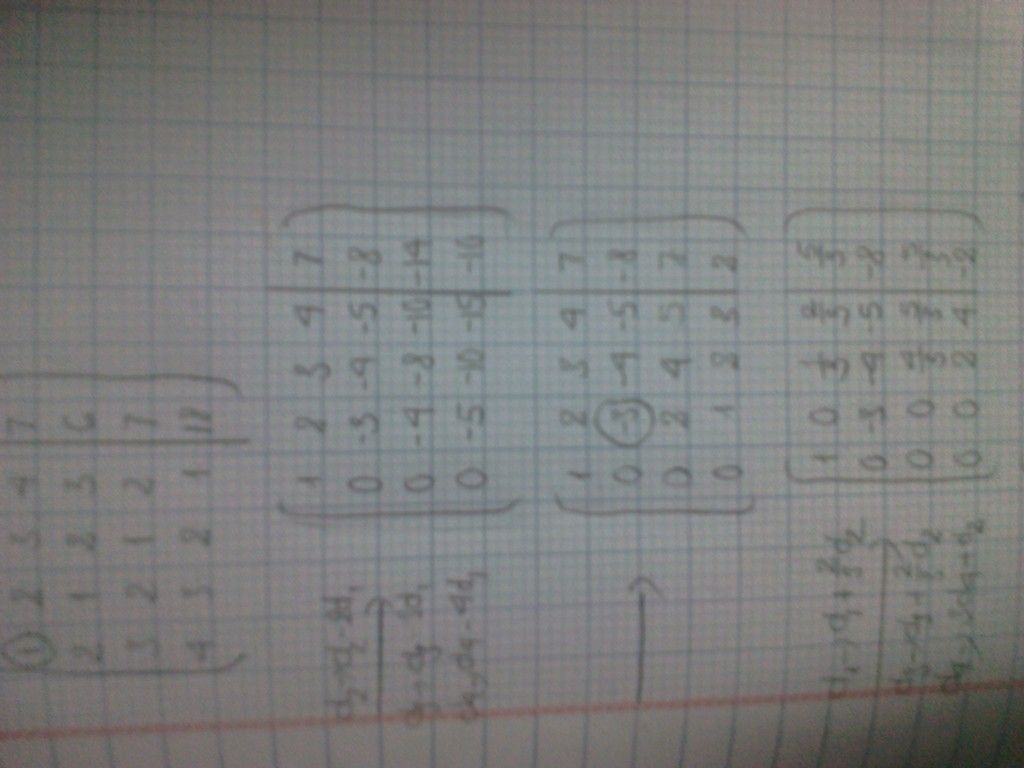 1 2 3 4 | 7
2 1 2 3 | 6
3 2 1 2 | 7
4 3 2 1 | 18
d₂→d₂-2d₁
d₃→d₃-3d₁
d₄→d₄-4d₁
1 2 3 4 | 7
0 -3 -4 -5 | -8
0 -4 -8 -10 | -14
0 -5 -10 -15 | -10
→
1 2 3 4 | 7
0 -3 -4 -5 | -8
0 2 4 5 | 7
0 1 2 3 | 2
d₁→d₁+⅔d₂
d₃→d₃+⅔d₂
d₄→3d₄+d₂
1 0 ⅓ ⅔ | 5/3
0 -3 -4 -5 | -8
0 0 4/3 5/3 | 5/3
0 0 2 4 | -2